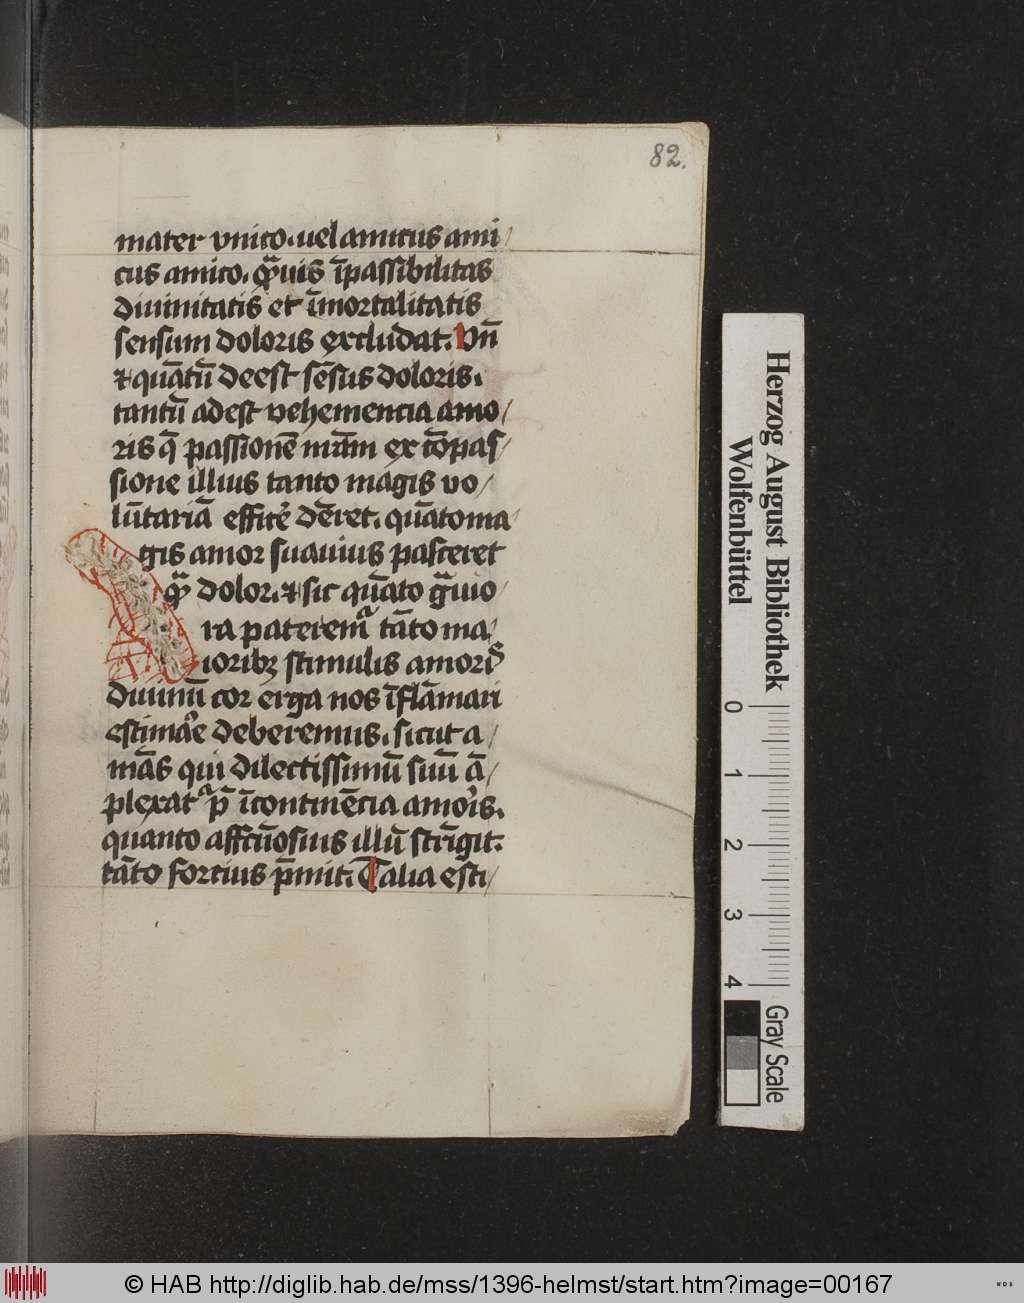 82.
mater vnico. uel amicus ami/
cus amico. q̄uis īpassibilitas
diuinitatis et īmortalitatis
sensum doloris excludat. Vn̄
⁊ quātū deest sēsus doloris.
tantū adest vehemencia amo/
ris q̄ passionē mēm ex cōpas/
sione illius tanto magis vo/
lūtariā effic̄e dēret. quāto ma/
gis amor suauius pasceret
q̄ dolor. ⁊ sic quāto g̃uio/
ra pateremᷣ tāto ma/
ioribꝫ stimulis amorꝭ
diuinū cor erga nos īflāmari
estimāe deberemus. sicut a/
mās qui dilectissimū suū ā/
plexatᷣ p̄ īcontinēcia amōis.
quanto affcūosius illū strīgit.
tāto forcius p̄mit. Talia esti/
Herzog August Bibliothek
Wolfenbüttel
0 1 2 3 4
Gray Scale
© HAB http://diglib.hab.de/mss/1396-helmst/start.htm?image=00167
WDB